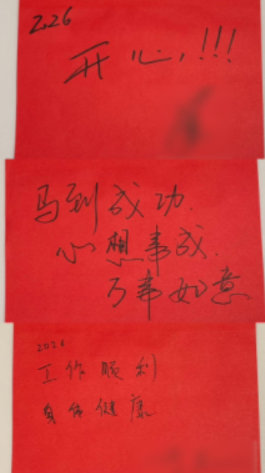 2.26
开心,!!!
马到成功.
心想事成.
万事如意
2026
工作顺利
身体健康